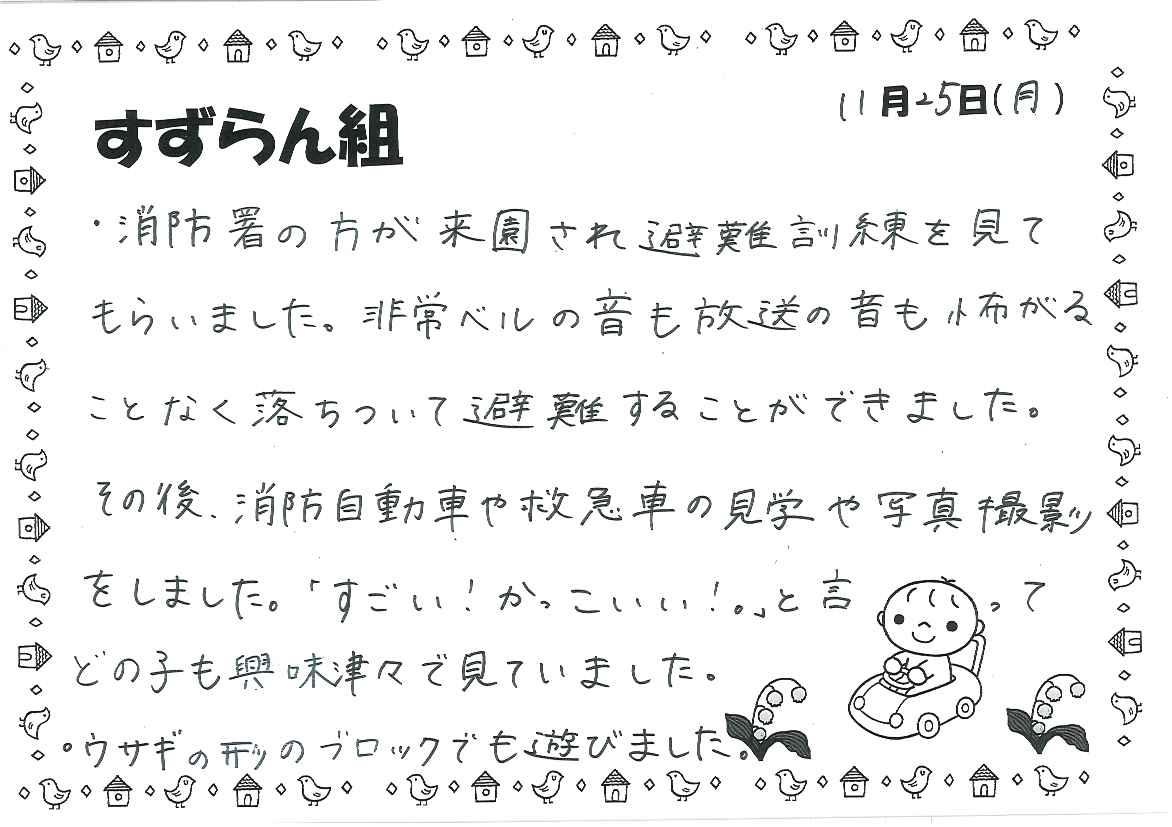 11月25日(月)
すずらん組
・消防署の方が来園され避難訓練を見て
もらいました。非常ベルの音も放送の音も怖がる
ことなく落ちついて避難することができました。
その後、消防自動車や救急車の見学や写真撮影
をしました。「すごい!かっこいい!。」と言って
どの子も興味津々で見ていました。
・ウサギの形のブロックでも遊びました。